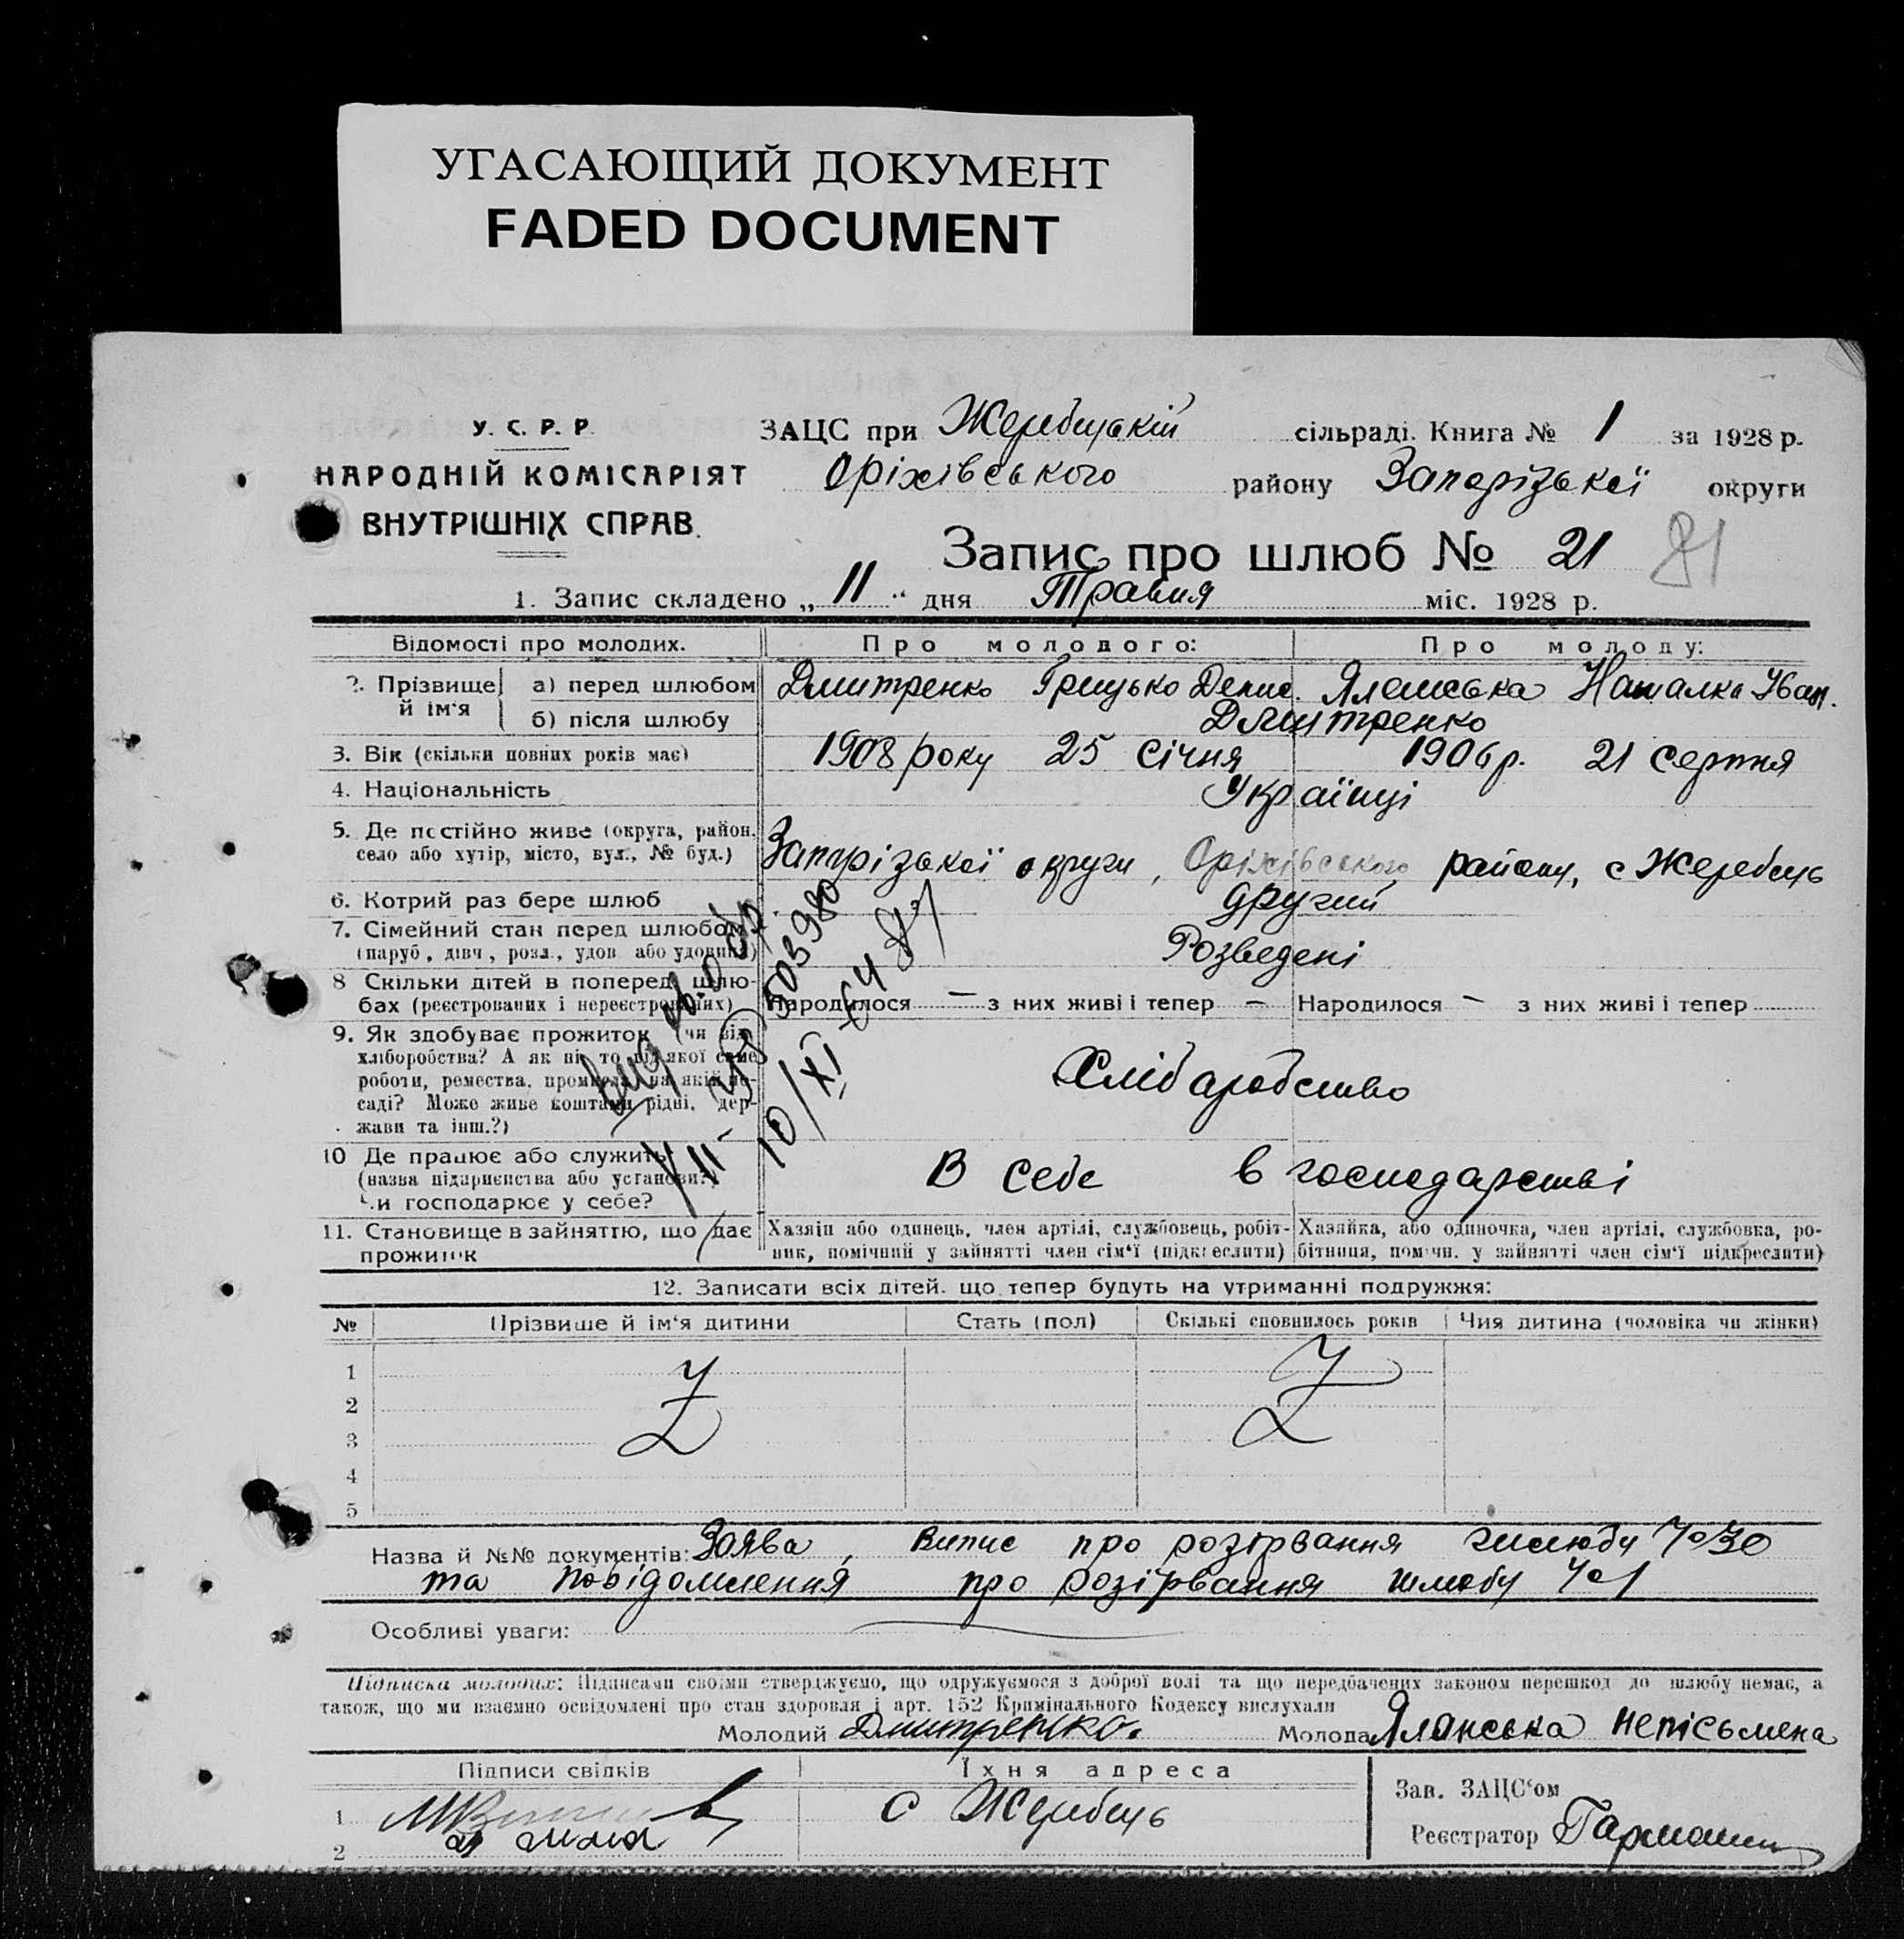 УГАСАЮЩИЙ ДОКУМЕНТ
FADED DOCUMENT
У. С. Р. Р.
НАРОДНІЙ КОМІСАРІЯТ
ВНУТРІШНІХ СПРАВ.
ЗАЦС при Жеребецькій сільраді. Книга № 1 за 1928 р.
Оріхівського району Запорізької округи
Запис про шлюб № 21 81
1. Запис складено „ 11 “ дня Травня міс. 1928 р.
Відомості про молодих. Про молодого: Про молоду:
2. Прізвище й ім'я а) перед шлюбом Дмитренко Грицько Денис. Яланська Наталка Іван.
б) після шлюбу Дмитренко
3. Вік (скільки повних років має) 1908 року 25 Січня 1906 р. 21 Серпня
4. Національність Українці
5. Де постійно живе (округа, район, село або хутір, місто, вул., № буд.) Запорізької округи, Оріхівського району, с Жеребець
6. Котрий раз бере шлюб другий
7. Сімейний стан перед шлюбом (паруб., дівч., розл., удов. або удовиця) Розведені
8 Скільки дітей в поперед. шлю-
бах (реєстрованих і нереєстрованих) Народилося — з них живі і тепер — Народилося — з них живі і тепер
9. Як здобуває прожиток (чи від
хліборобства? А як ні, то від якої саме
роботи, ремества, промисла, на якій по-
саді? Може живе коштами рідні, дер-
жави та інш.?)
Хліборобство
10 Де працює або служить
(назва підприємства або установи?)
Чи господарює у себе?
В себе в господарстві
11. Становище в зайняттю, що дає
прожиток
Хазяїн або одинець, член артілі, службовець, робіт-
ник, помічний у зайнятті член сім'ї (підкреслити)
Хазяйка, або одиночка, член артілі, службовка, ро-
бітниця, помічн. у зайнятті член сім'ї підкреслити)
10/XI-64 81
12. Записати всіх дітей. що тепер будуть на утриманні подружжя:
№ Прізвище й ім'я дитини Стать (пол) Скількі сповнилось років Чия дитина (чоловіка чи жінки)
1
2
3
4
5
Назва й №№ документів: Заява, Випис про розірвання шлюбу № 30
та повідомлення про розірвання шлюбу № 1
Особливі уваги:
Підписка молодих: Підписами своїми стверджуємо, що одружуємося з доброї волі та що передбачених законом перешкод до шлюбу немає, а
також, що ми взаємно освідомлені про стан здоровля і арт. 152 Кримінального Кодексу вислухали
Молодий Дмитренко. Молода Яланська неписьмена
Підписи свідків Їхня адреса
1 с Жеребець
2
Зав. ЗАЦС'ом
Реєстратор